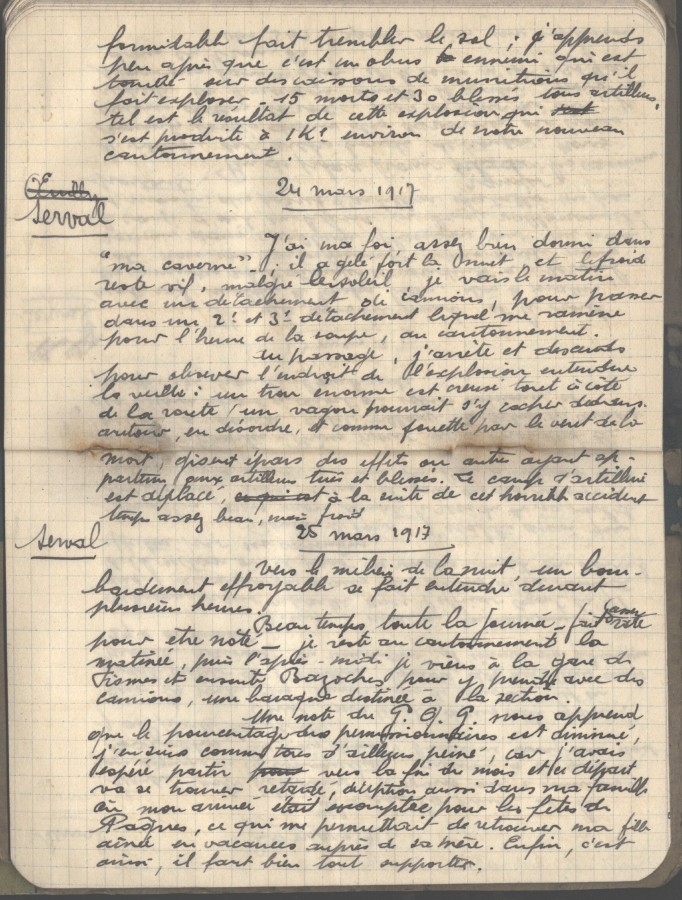 formidable fait trembler le sol ; j'apprends
peu après que c'est un obus ennemi qui est
tombé sur des caissons de munitions qu'il
fait exploser - 15 morts et 30 blessés tous artilleurs,
tel est le résultat de cette explosion qui
s'est produite à 1 K. environ de notre nouveau
cantonnement.
24 mars 1917
Œuilly
Serval
J'ai ma foi, assez bien dormi dans
"ma caverne" ; il a gelé fort la nuit, et le froid
reste vif, malgré le soleil, je vais le matin
avec un détachement de camions, pour passer
dans un 2e et 3e détachement lequel me ramène
pour l'heure de la soupe, au cantonnement.
En passage, j'arrête et descends
pour observer l'endroit de l'explosion entendue
la veille : un trou énorme est creusé tout à côté
de la route, un wagon pourrait s'y cacher dedans.
autour, en désordre, et comme fouetté par le vent de la
mort, gisent épars des effets ou autres ayant ap-
partenu aux artilleurs tués et blessés. Le camp d'artillerie
est déplacé, ce qui est à la suite de cet horrible accident
temps assez beau, mais froid
Serval
25 mars 1917
Vers le milieu de la nuit, un bom-
bardement effroyable se fait entendre durant
plusieurs heures.
Beau temps toute la journée - fait assez rare
pour être noté - je reste au cantonnement la
matinée, puis l'après-midi je viens à la gare de
Fismes et ensuite Bazoches pour y prendre avec des
camions, une baraque destinée à la section.
Une note du G.Q.G. nous apprend
que le pourcentage des permissionnaires est diminué,
j'en suis comme tous d'ailleurs peiné, car j'avais
espéré partir pour vers la fin du mois et ce départ
va se trouver retardé, déception aussi dans ma famille
où mon arrivée était escomptée pour les fêtes de
Pâques, ce qui me permettait de retrouver ma fille
ainée en vacances auprès de sa mère. Enfin, c'est
ainsi, il faut bien tout supporter.